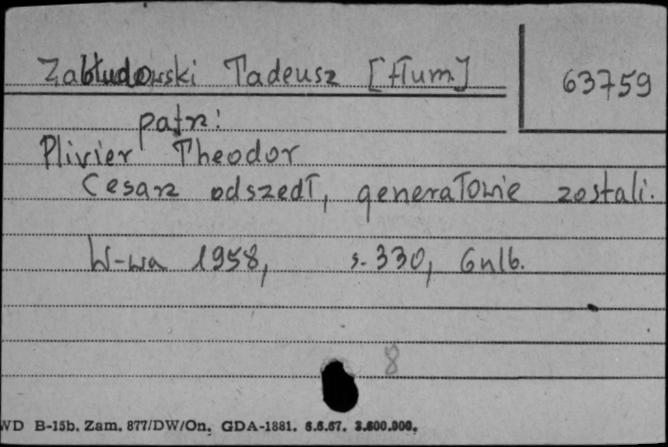 Zabłudowski Tadeusz [tłum.] 63759
patrz:
Plivier Theodor
Cesarz odszedł, generałowie zostali.
W-wa 1958, s. 330, 6nlb.
8
WD B-15b. Zam. 877/DW/On. GDA-1881. 6.6.67. 3.600.000.